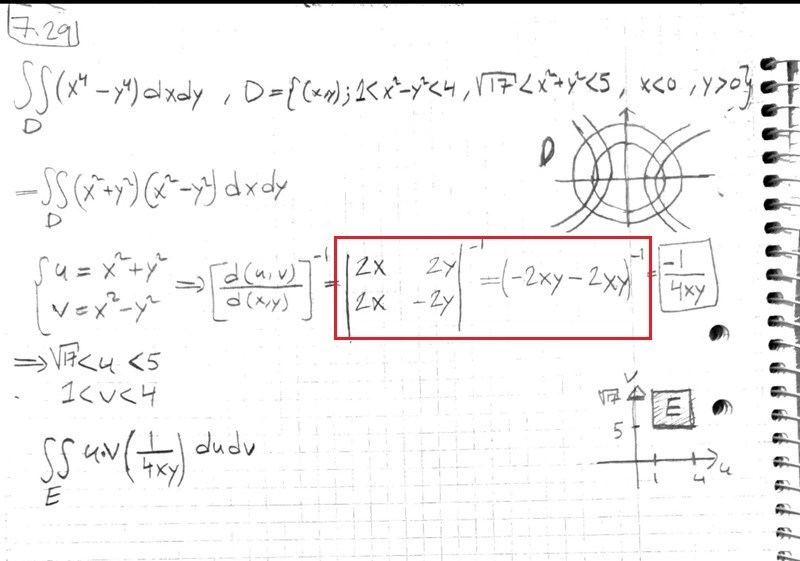 7.29
∬_D (x⁴ - y⁴) dxdy , D = {(x,y); 1 < x² - y² < 4, √17 < x² + y² < 5, x<0, y>0}
D
= ∬_D (x² + y²)(x² - y²) dxdy
{ u = x² + y²
v = x² - y² ⇒ [d(u,v)/d(x,y)]⁻¹ = |2x 2y; 2x -2y|⁻¹ = (-2xy - 2xy)⁻¹ = -1/4xy
⇒ √17 < u < 5
1 < v < 4
∬_E u·v (1/4xy) dudv
v
√17
E
5
1 4 u